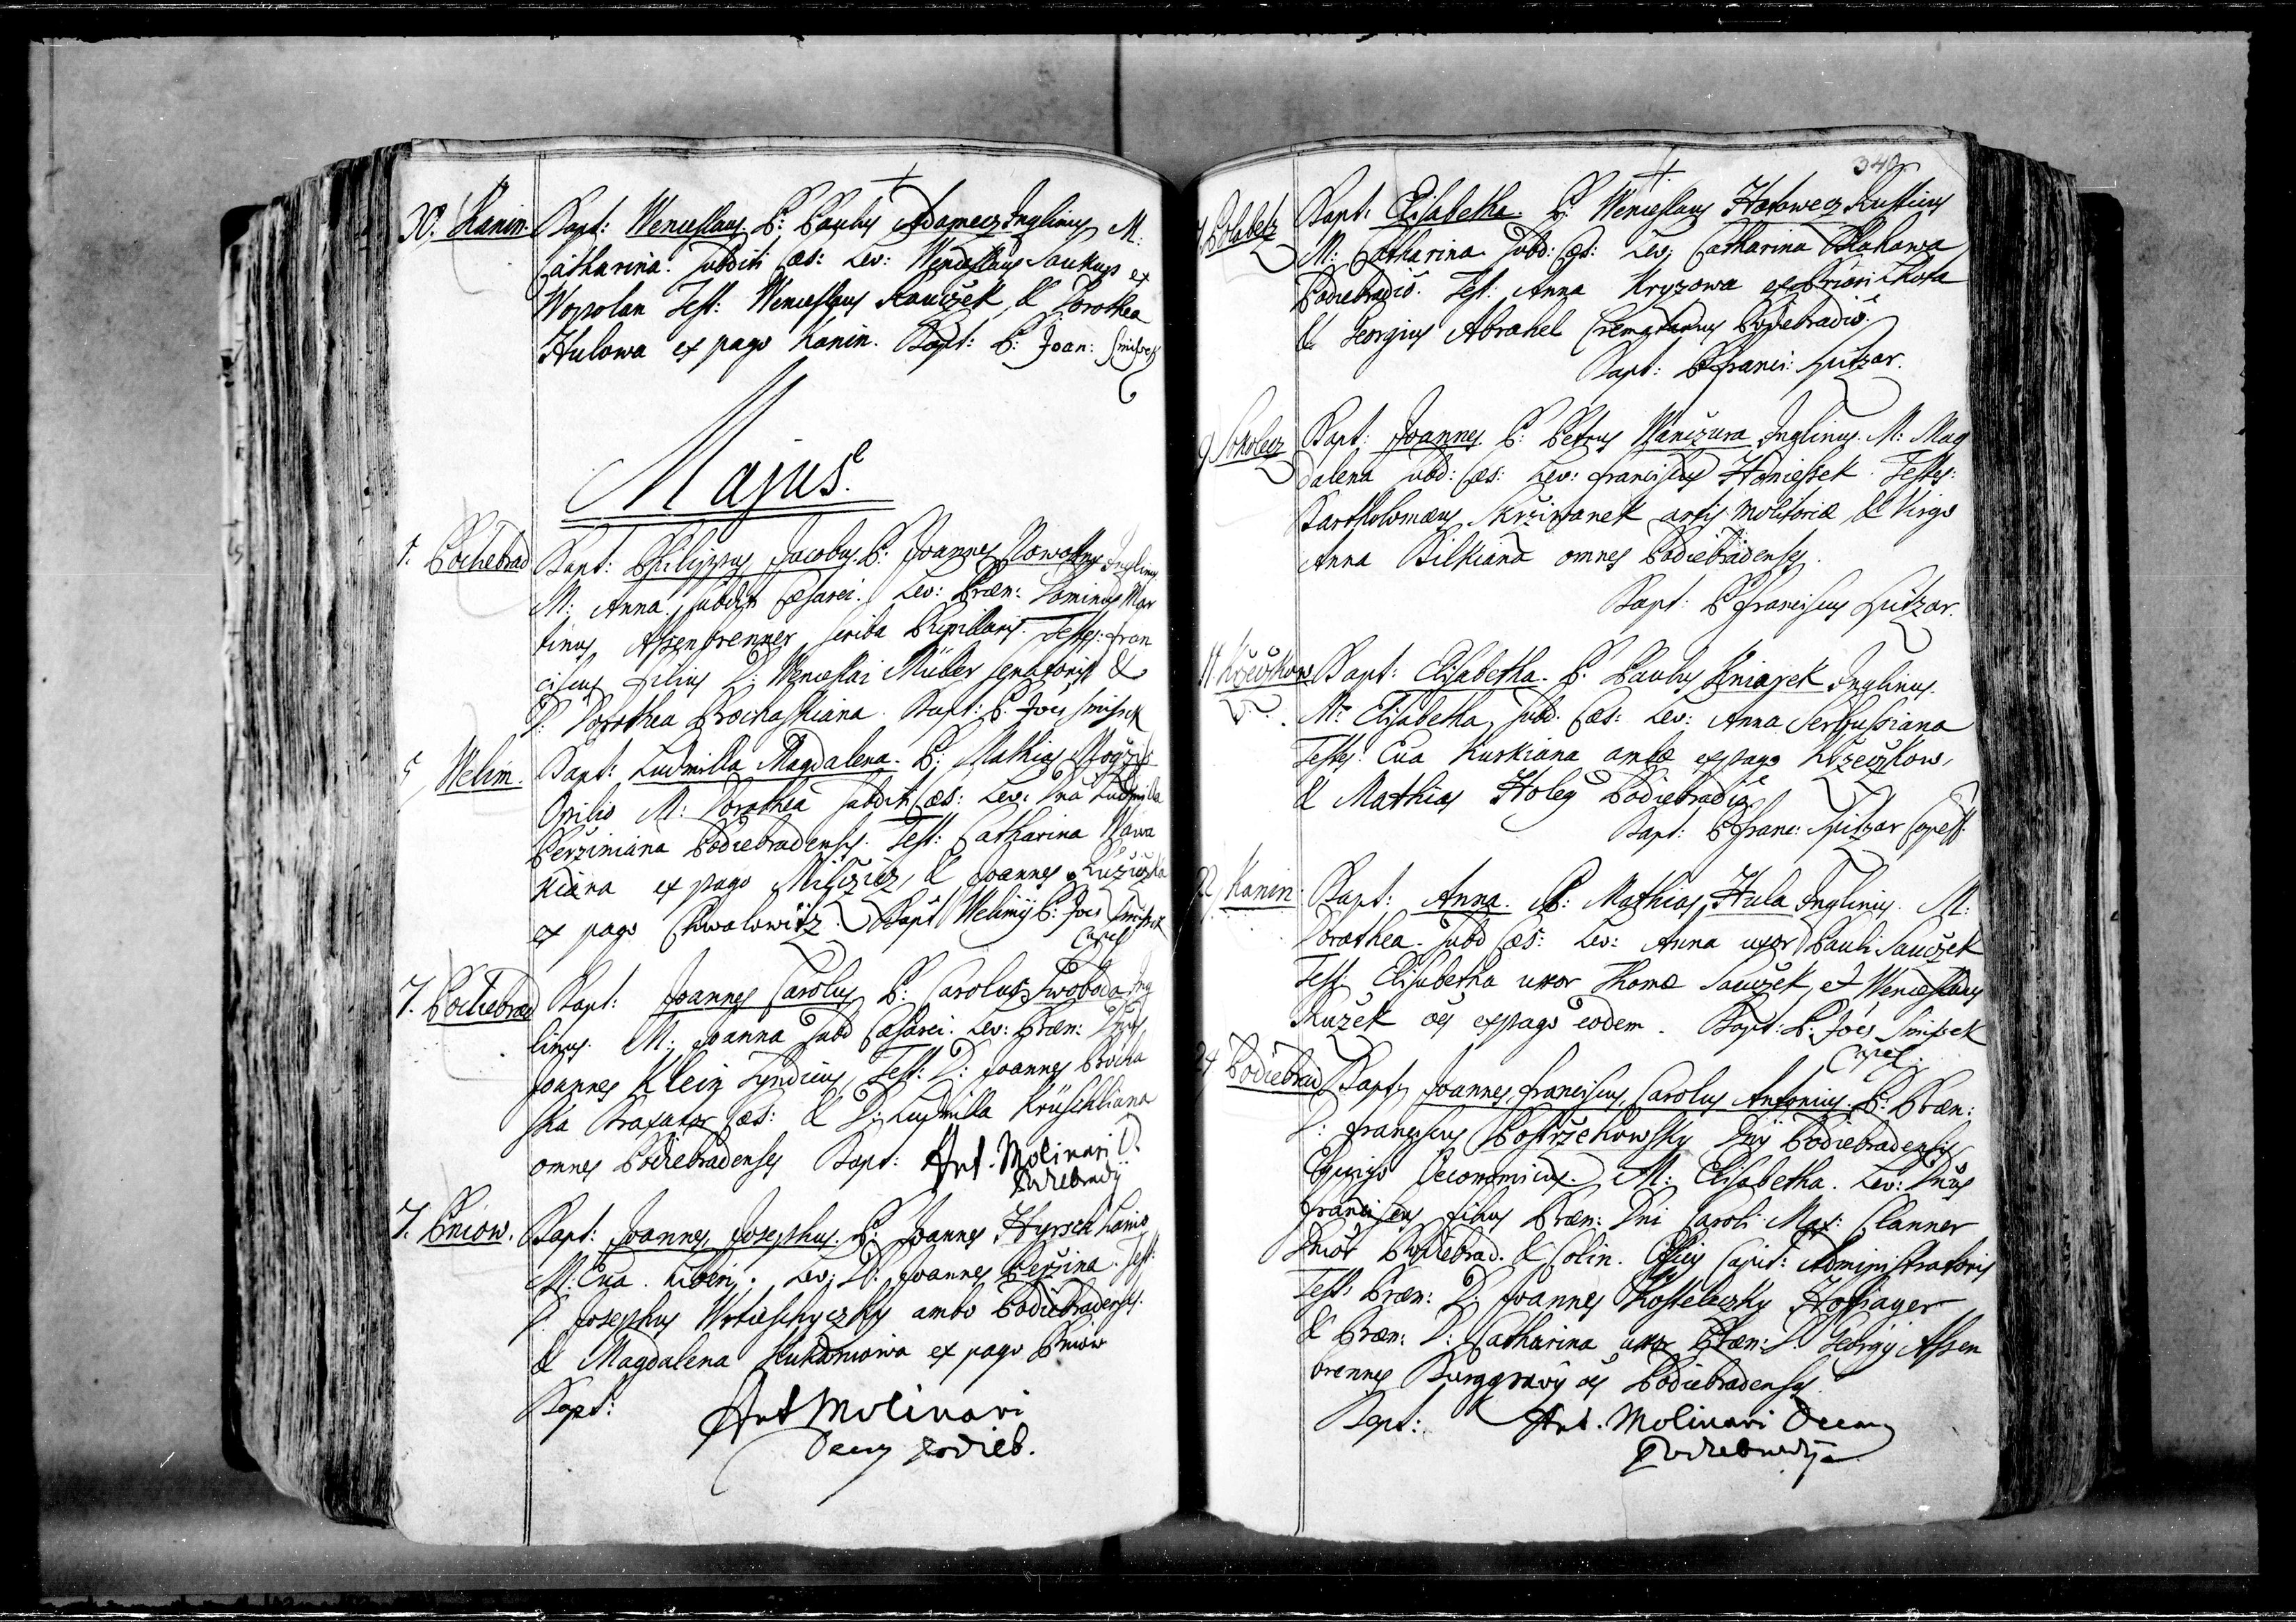 30. Kanin. Bapt: Wenceslaus. P: Paulus Adamecz Inqlinus M:
Catharina. subditi Cæs: Lev: Wenceslaus Saukup ex
Wopolan Test: Wenceslaus Sauczek & Dorothea
Hulowa ex pago Kanin. Bapt: P: Joan: Smissek
Majus.
1. Podiebrad Bapt: Philippus Jacobus. P: Joannes Nowotny Inqlinus
M: Anna. subditi Cæsarei. Lev: Præn: Dominus Mar
tinus Assenbrenner scriba Pupillaris. Testes: Fran
ciscus filius D: Wenceslai Müller Senatoris &
D: Dorothea Prochaskiana. Bapt: P: Joes Smissek
5 Welim. Bapt: Ludmilla Magdalena. P: Mathias
Opilio M: Dorothea subditi Cæs: Lev: Dna Ludmilla
Perziniana Podiebradensis. Test: Catharina Wawa
kiana ex pago Milczicz, & Joannes Ruzicska
ex pago Chwalowitz. Bapt Welimij P: Joes Smissek
Capel
7. Podiebrad Bapt: Joannes Carolus P: Carolus Swoboda Inq
linus. M: Joanna subd Cæsarei. Lev: Præn: Dnus
Joannes Klein Syndicus, Test: D: Joannes Procha
ska Traxator Cæs: & D: Ludmilla Krüschliana
omnes Podiebradenses Bapt: Ant. Molinari D.
Podiebradij
7. Pniow. Bapt: Joannes Josephus. P: Joannes Hyrsch Lanio
M: Eva. Liberi. Lev: D: Joannes Peržina. Test:
D. Josephus Wrtieschyczky ambo Podiebradenses.
& Magdalena Hukdniowa ex pago Pniow
Bapt: Ant Molinari
Decanus Podieb.
340
7 Polabetz Bapt: Elisabetha. P: Wenceslaus Holowecz Rusticus
M: Catharina subd: Cæs: Lev: Catharina Blahowa
Podiebradio. Test: Anna Kryzowa ex Przni Lhota
& Georgius Abrahel Cremarius Podiebradio.
Bapt: P Franci: Spitzar.
9 Sokolecz Bapt: Joannes. P: Petrus Wanczura Inqlinus. M: Mag
dalena subd: Cæs: Lev: Franciscus Honieysek. Testes:
Bartholomæus Skrziwanek artis molitoriæ & Virgo
Anna Bilkiana omnes Podiebradenses.
Bapt: P Franciscus Spitzar.
11. Krzeczkow Bapt: Elisabetha. P: Paulus Kniazek Inqlinus.
M: Elisabetha, subd: Cæs: Lev: Anna Serbussiana
Testes: Eva Kurkiana ambæ ex pago Krzeczkow,
& Mathias Holey Podiebradio
Bapt: P Franc: Spitzar Capell:
22 Kanin. Bapt: Anna. P: Mathias Hula Inqlinus. M:
Dorothea. subd Cæs: Lev: Anna uxor Pauli Sauczek
Test: Elisabetha uxor Thomæ Sauczek, et Wenceslaus
Ruzek oes ex pago eodem. Bapt: P: Joes Smissek
Capel:
24 Podiebrad Bapt: Joannes, Franciscus, Carolus Antonius. P: Præn:
D: Franciscus Postrzehowsky Dnij Podiebradensis
Oeconomicus. M: Elisabetha. Lev: Dnus
Franciscus filius Præn: Dni Caroli Max: Clanner
Dnior Podiebrad. & Colin. Officij Capit: Administratoris
Test: Præn: D: Joannes Kosteleczky Hofjager
& Præn: D: Catharina uxor Præn: D: Georgij Assen
brennes Burggravij oes Podiebradenses.
Bapt: Ant. Molinari Decanus
Podiebradij